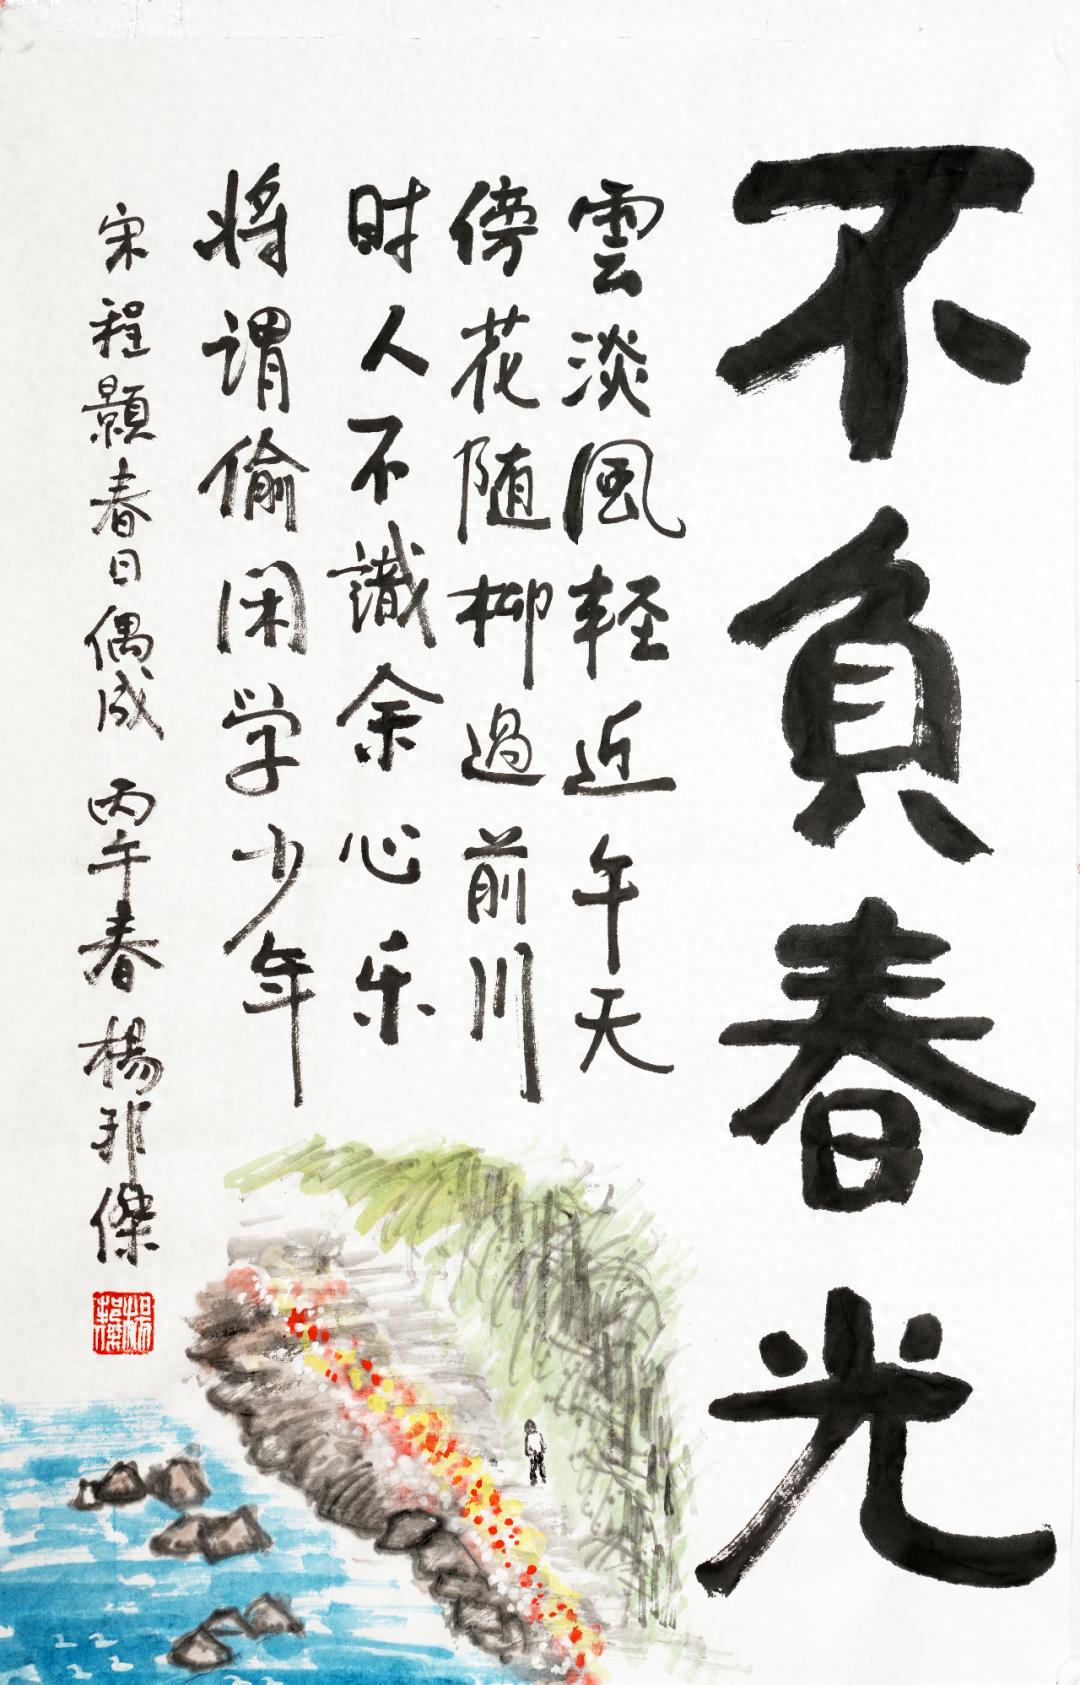 不负春光
雲淡風軽近午天
傍花随柳過前川
时人不識余心乐
将谓偷闲学少年
宋程顥春日偶成 丙午春 楊邦傑